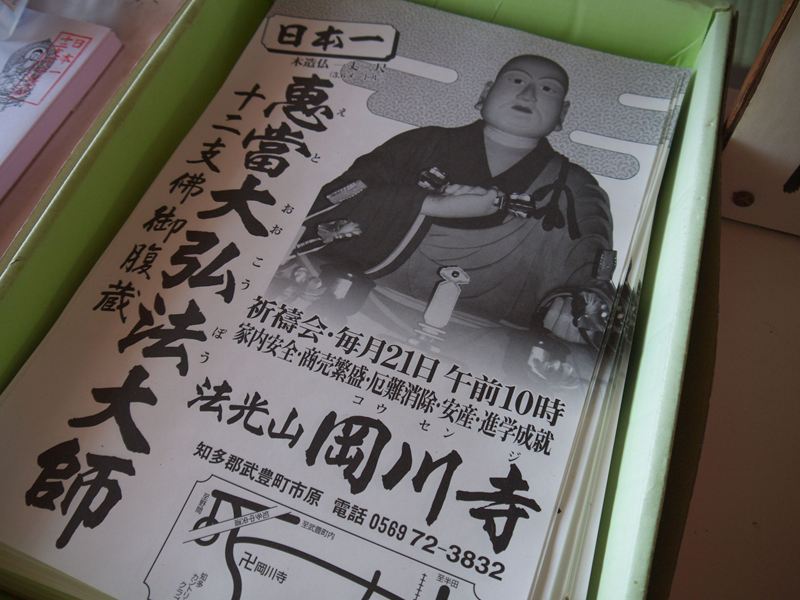 日本一
木造仏一丈二尺
(3.6メートル)
惠當大弘法大師
えとおおこうぼう
十二支佛御腹蔵
祈禱会・毎月21日 午前10時
家内安全・商売繁盛・厄難消除・安産・進学成就
コウセンジ
法光山岡川寺
知多郡武豊町市原 電話0569 72-3832
至武豊町内
卍岡川寺
至半田
知多
カントリー
クラブ
日本一